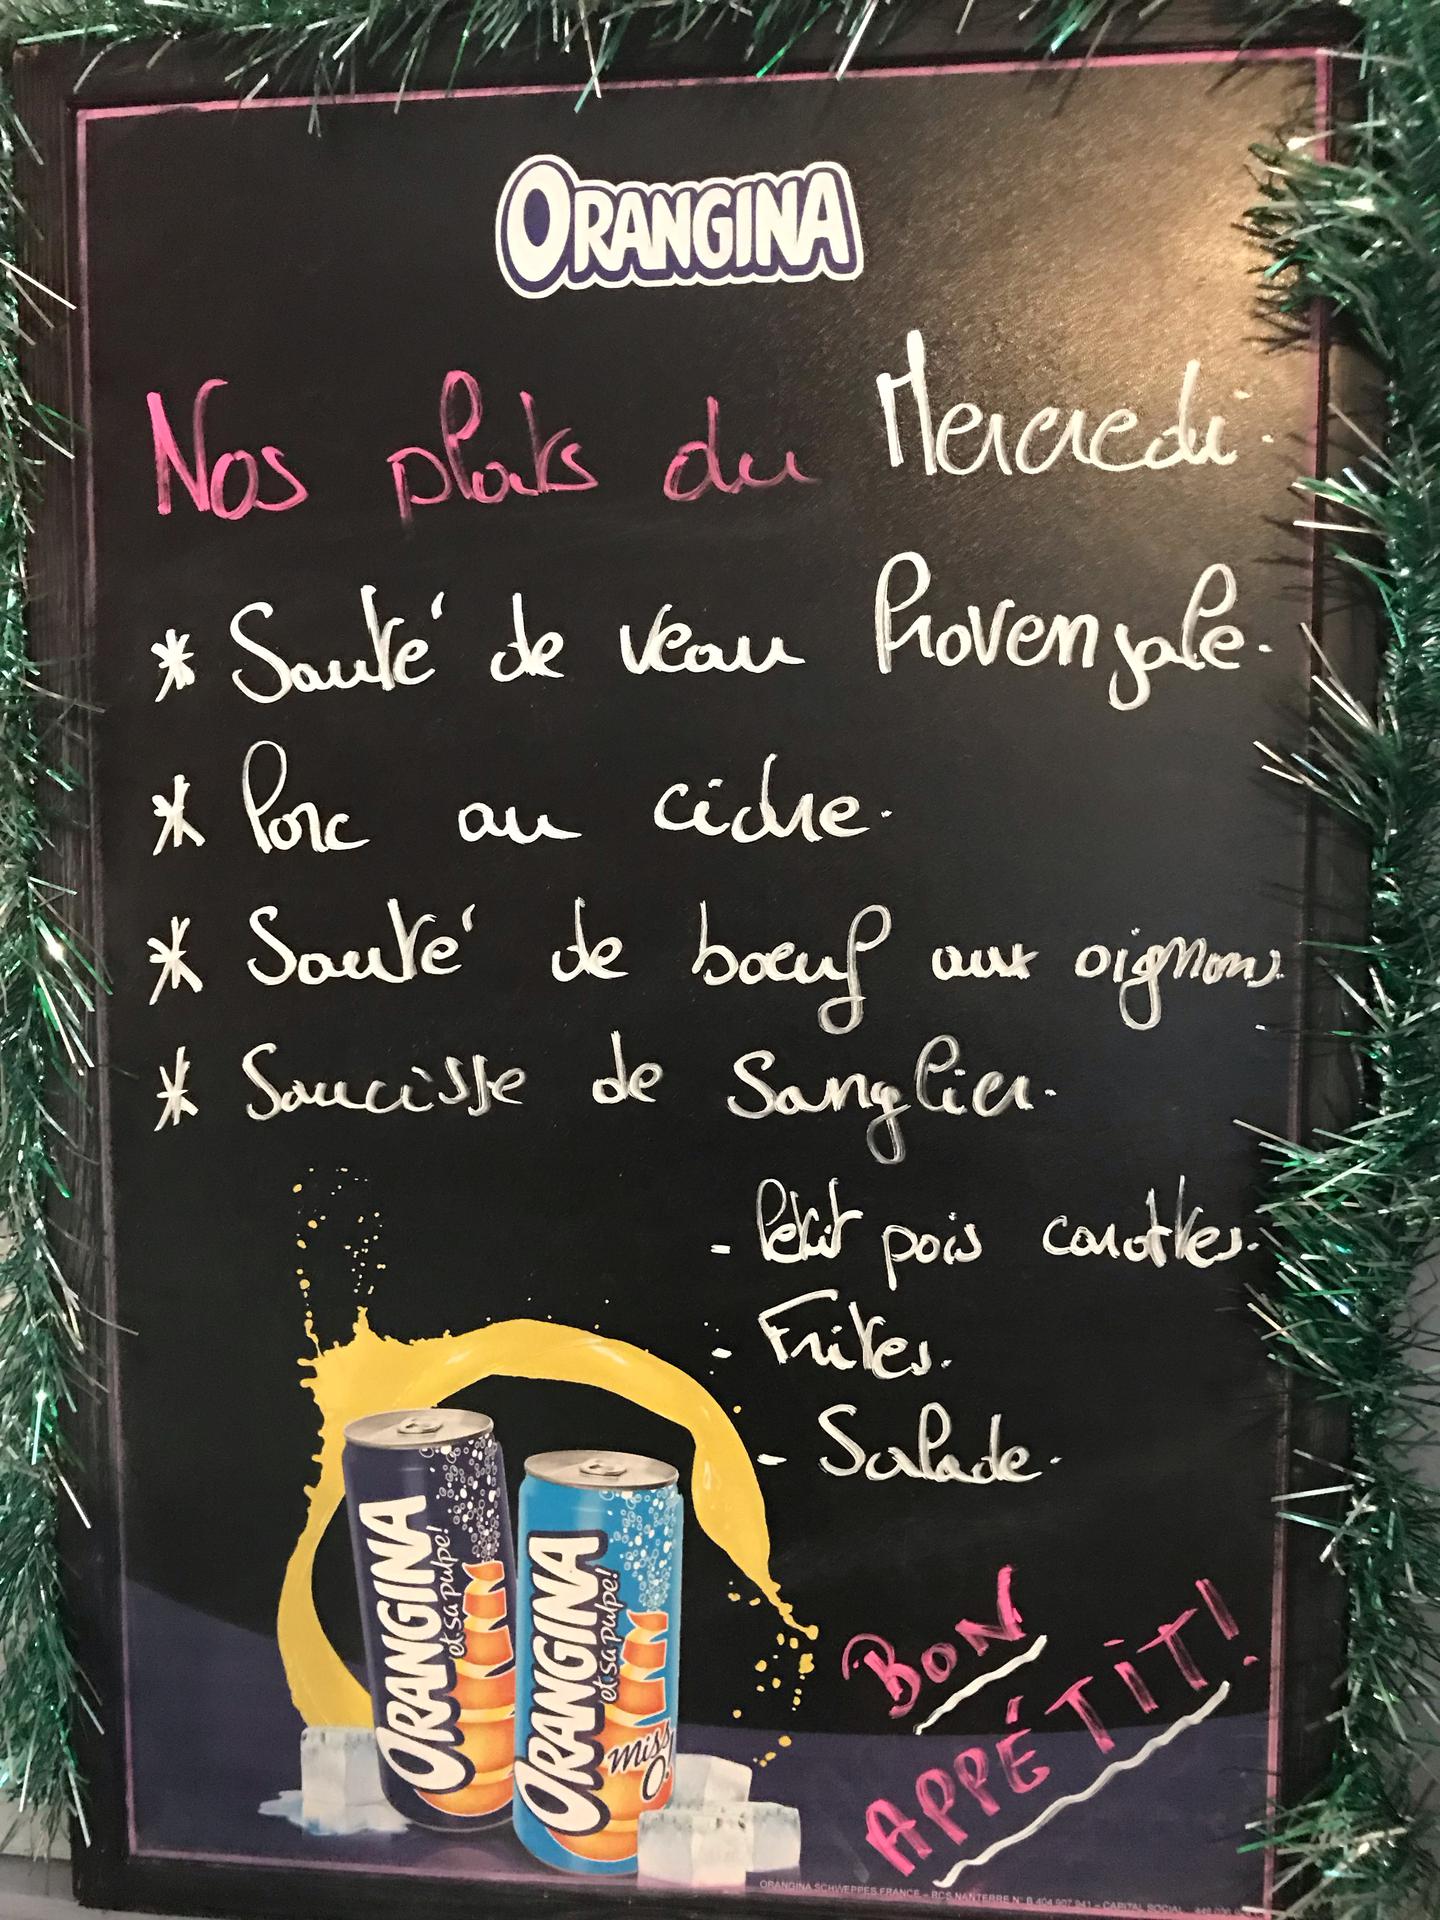 ORANGINA
Nos plats du Mercredi.
* Sauté de veau Provençale.
* Porc au cidre.
* Sauté de bœuf aux oignons.
* Saucisse de Sanglier.
- Petit pois carottes.
- Frites.
- Salade.
BON
APPÉTIT!
ORANGINA
et sa pulpe!
ORANGINA
et sa pulpe!
miss
O!
ORANGINA SCHWEPPES FRANCE – RCS NANTERRE N° B 404 907 941 – CAPITAL SOCIAL